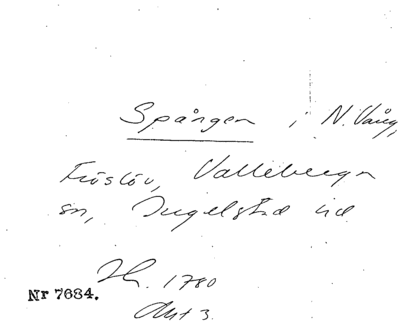 Spången i N. Vång,
Fröslöv, Valleberga
sn, Ingelstad hd
1780
Nr 7684.
Akt 3.